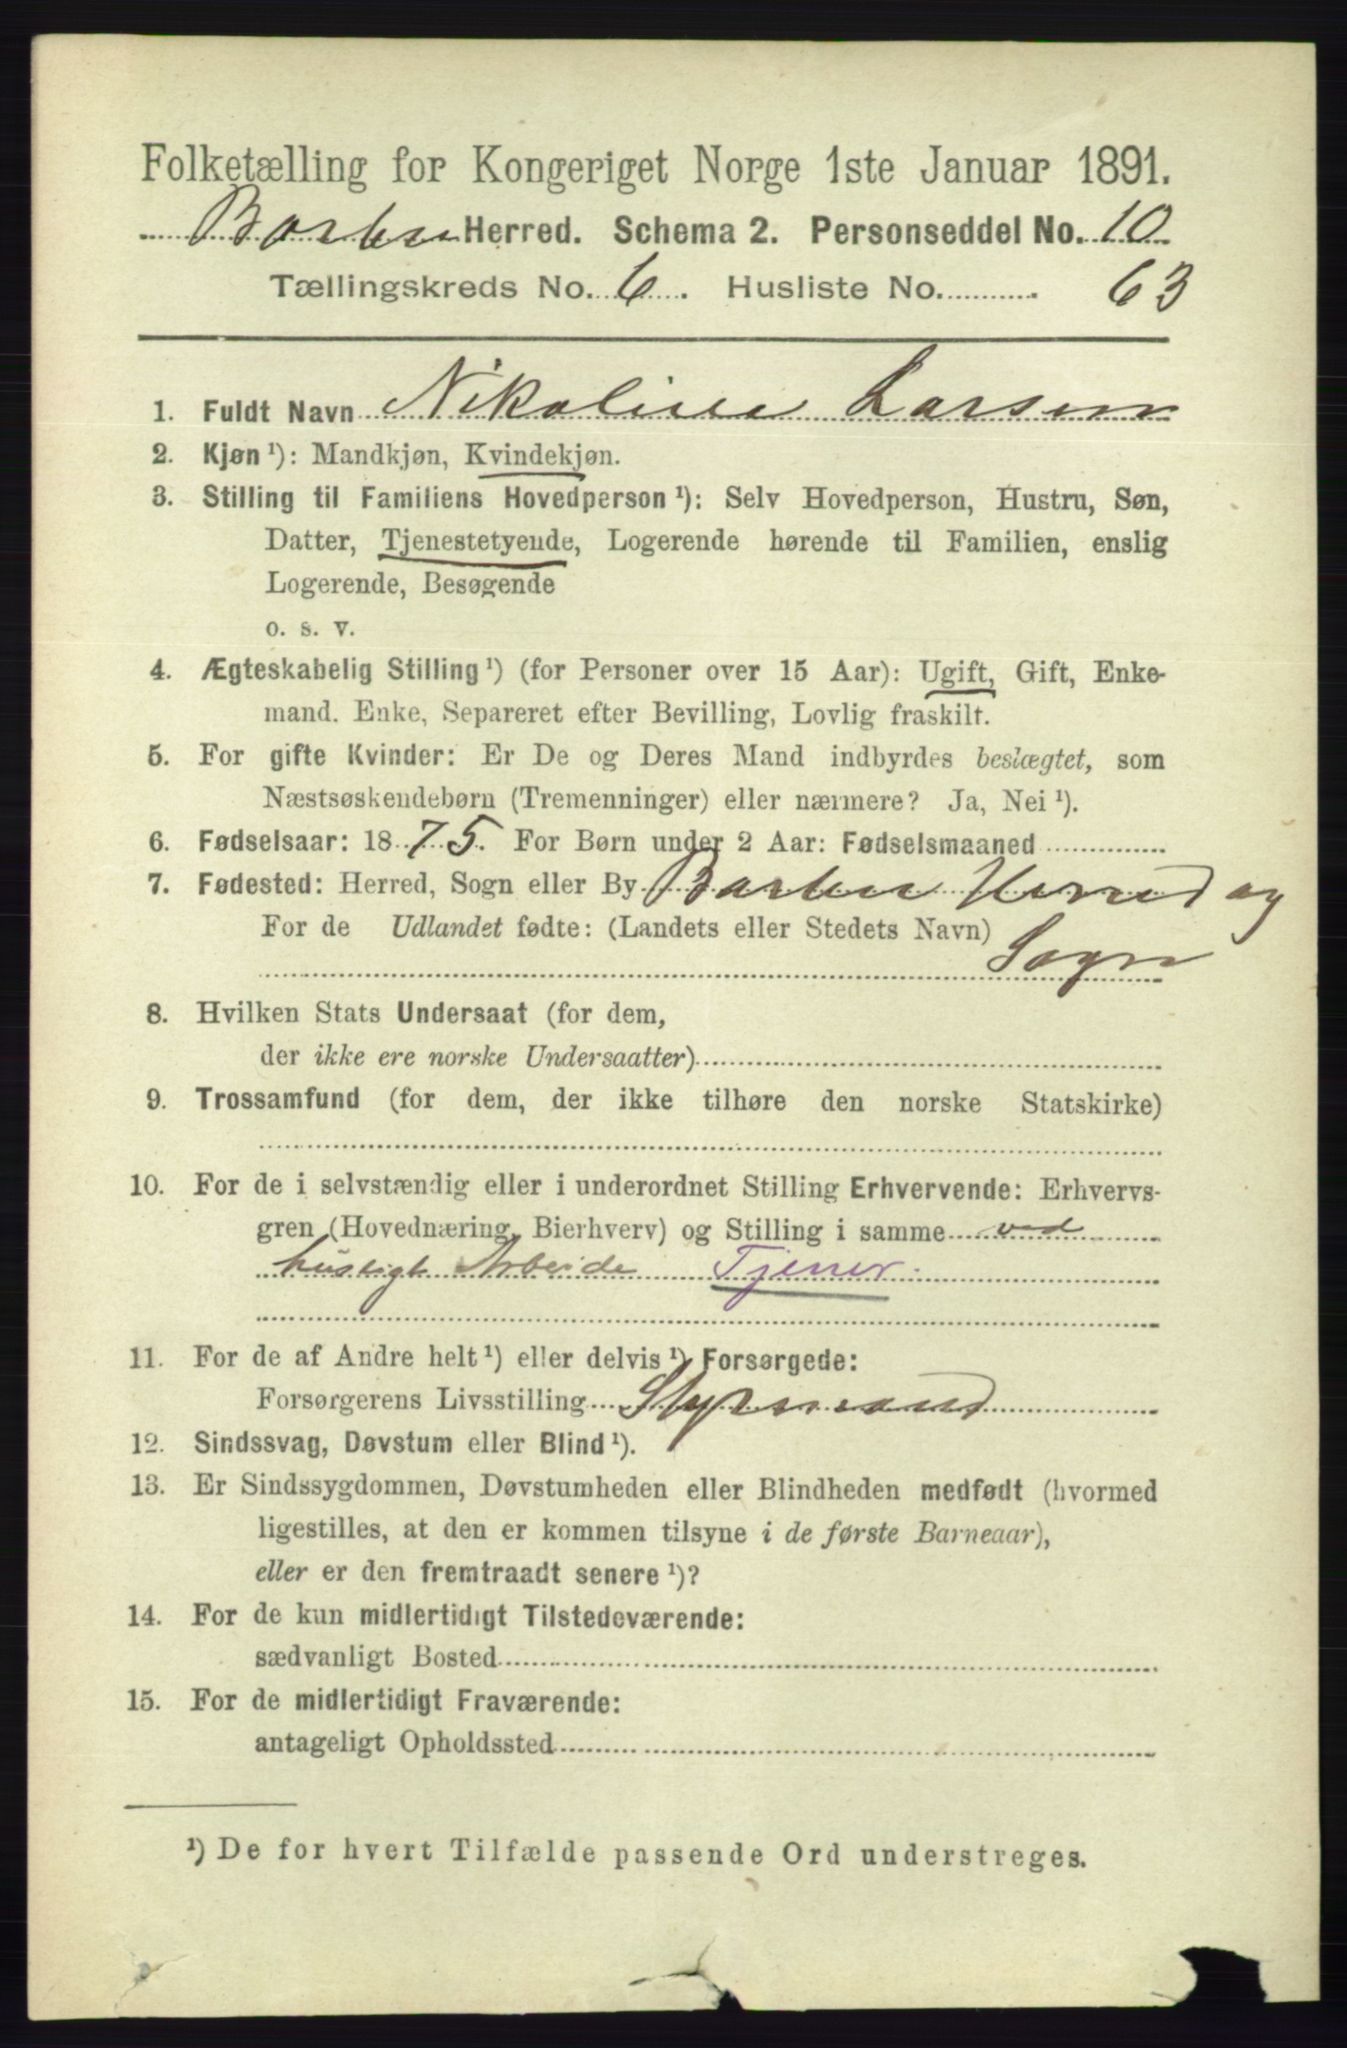 Folketælling for Kongeriget Norge 1ste Januar 1891.
Borben Herred. Schema 2. Personseddel No. 10
Tællingskreds No. 6. Husliste No. 63
1. Fuldt Navn Nikoline Larsen
2. Kjøn ¹): Mandkjøn, Kvindekjøn.
3. Stilling til Familiens Hovedperson ¹): Selv Hovedperson, Hustru, Søn,
Datter, Tjenestetyende, Logerende hørende til Familien, enslig
Logerende, Besøgende
o. s. v.
4. Ægteskabelig Stilling ¹) (for Personer over 15 Aar): Ugift, Gift, Enke-
mand. Enke, Separeret efter Bevilling, Lovlig fraskilt.
5. For gifte Kvinder: Er De og Deres Mand indbyrdes beslægtet, som
Næstsøskendebørn (Tremenninger) eller nærmere? Ja, Nei ¹).
6. Fødselsaar: 1875. For Børn under 2 Aar: Fødselsmaaned
7. Fødested: Herred, Sogn eller By Barben Herred og
For de Udlandet fødte: (Landets eller Stedets Navn)
Sogn
8. Hvilken Stats Undersaat (for dem,
der ikke ere norske Undersaatter)
9. Trossamfund (for dem, der ikke tilhøre den norske Statskirke)
10. For de i selvstændig eller i underordnet Stilling Erhvervende: Erhvervs-
gren (Hovednæring, Bierhverv) og Stilling i samme ved
husligt Arbeide Tjener.
11. For de af Andre helt ¹) eller delvis ¹) Forsørgede:
Forsørgerens Livsstilling Styrmand
12. Sindssvag, Døvstum eller Blind ¹).
13. Er Sindssygdommen, Døvstumheden eller Blindheden medfødt (hvormed
ligestilles, at den er kommen tilsyne i de første Barneaar),
eller er den fremtraadt senere ¹)?
14. For de kun midlertidigt Tilstedeværende:
sædvanligt Bosted
15. For de midlertidigt Fraværende:
antageligt Opholdssted
¹) De for hvert Tilfælde passende Ord understreges.